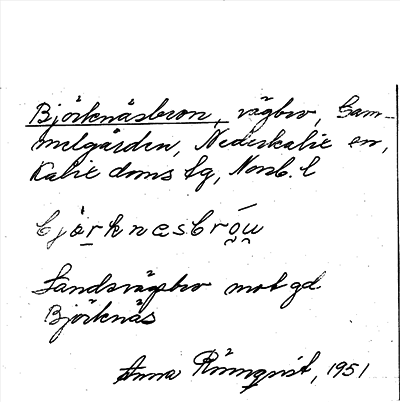 Björknäsbron, vägbro, Gam-
melgården, Nederkalix sn,
Kalix doms lg, Norrb. l
bjòrknesbróu̯
Landsvägsbro mot gd
Björknäs
Anna Rönnqvist, 1951